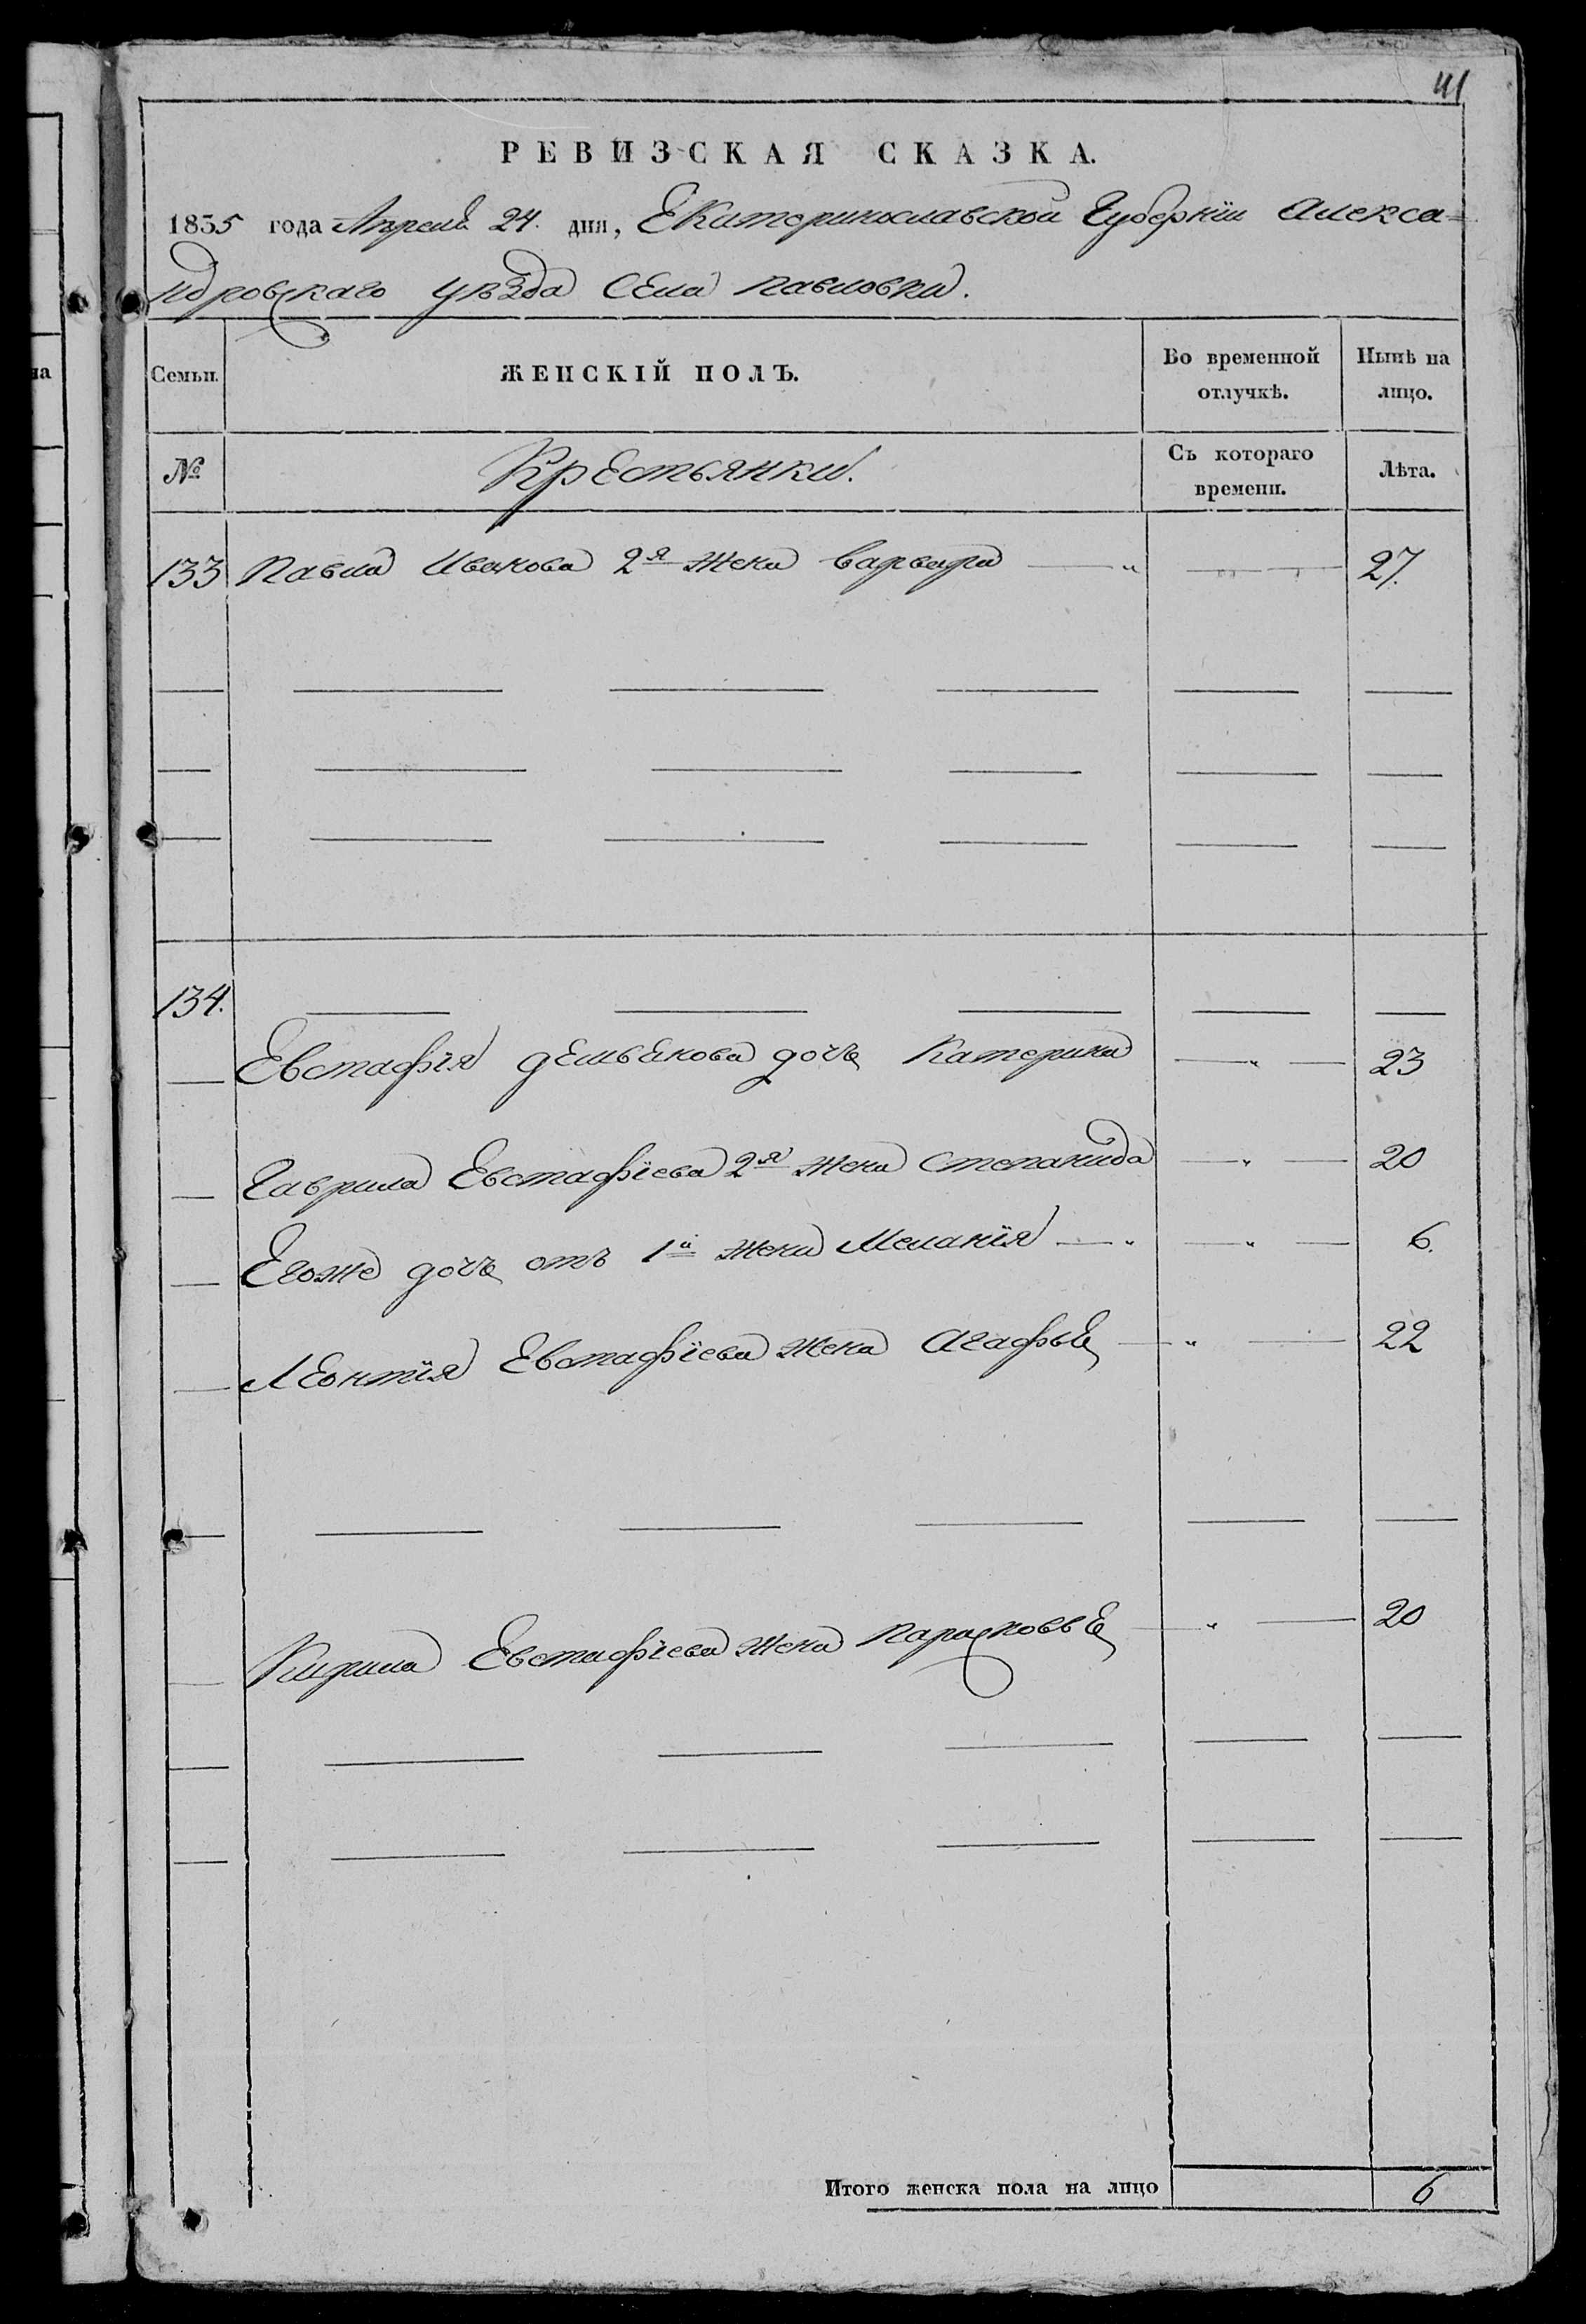 41
РЕВИЗСКАЯ СКАЗКА.
1835 года Апреля 24. дня, Екатеринославской Губернїи Алекса=
ндровскаго уѣзда Села Павловки.
Семьи. ЖЕНСКІЙ ПОЛЪ. Во временной отлучкѣ. Нынѣ на лицо.
№ Крестьянки. Съ котораго времени. Лѣта.
133 Павла Иванова 2я жена Варвара — „ — „ — 27.
134.
Евстафія дочь Катерина — „ — 23
Гаврила Евстафїева 2я жена Степанида — „ — 20
Егоже дочь отъ 1й жены Меланїя — „ — „ — 6.
Леонтїя Евстафїева жена Агафья — „ — 22
Кирила Евстафїева жена Парасковья — „ — 20
Итого женска пола на лицо 6